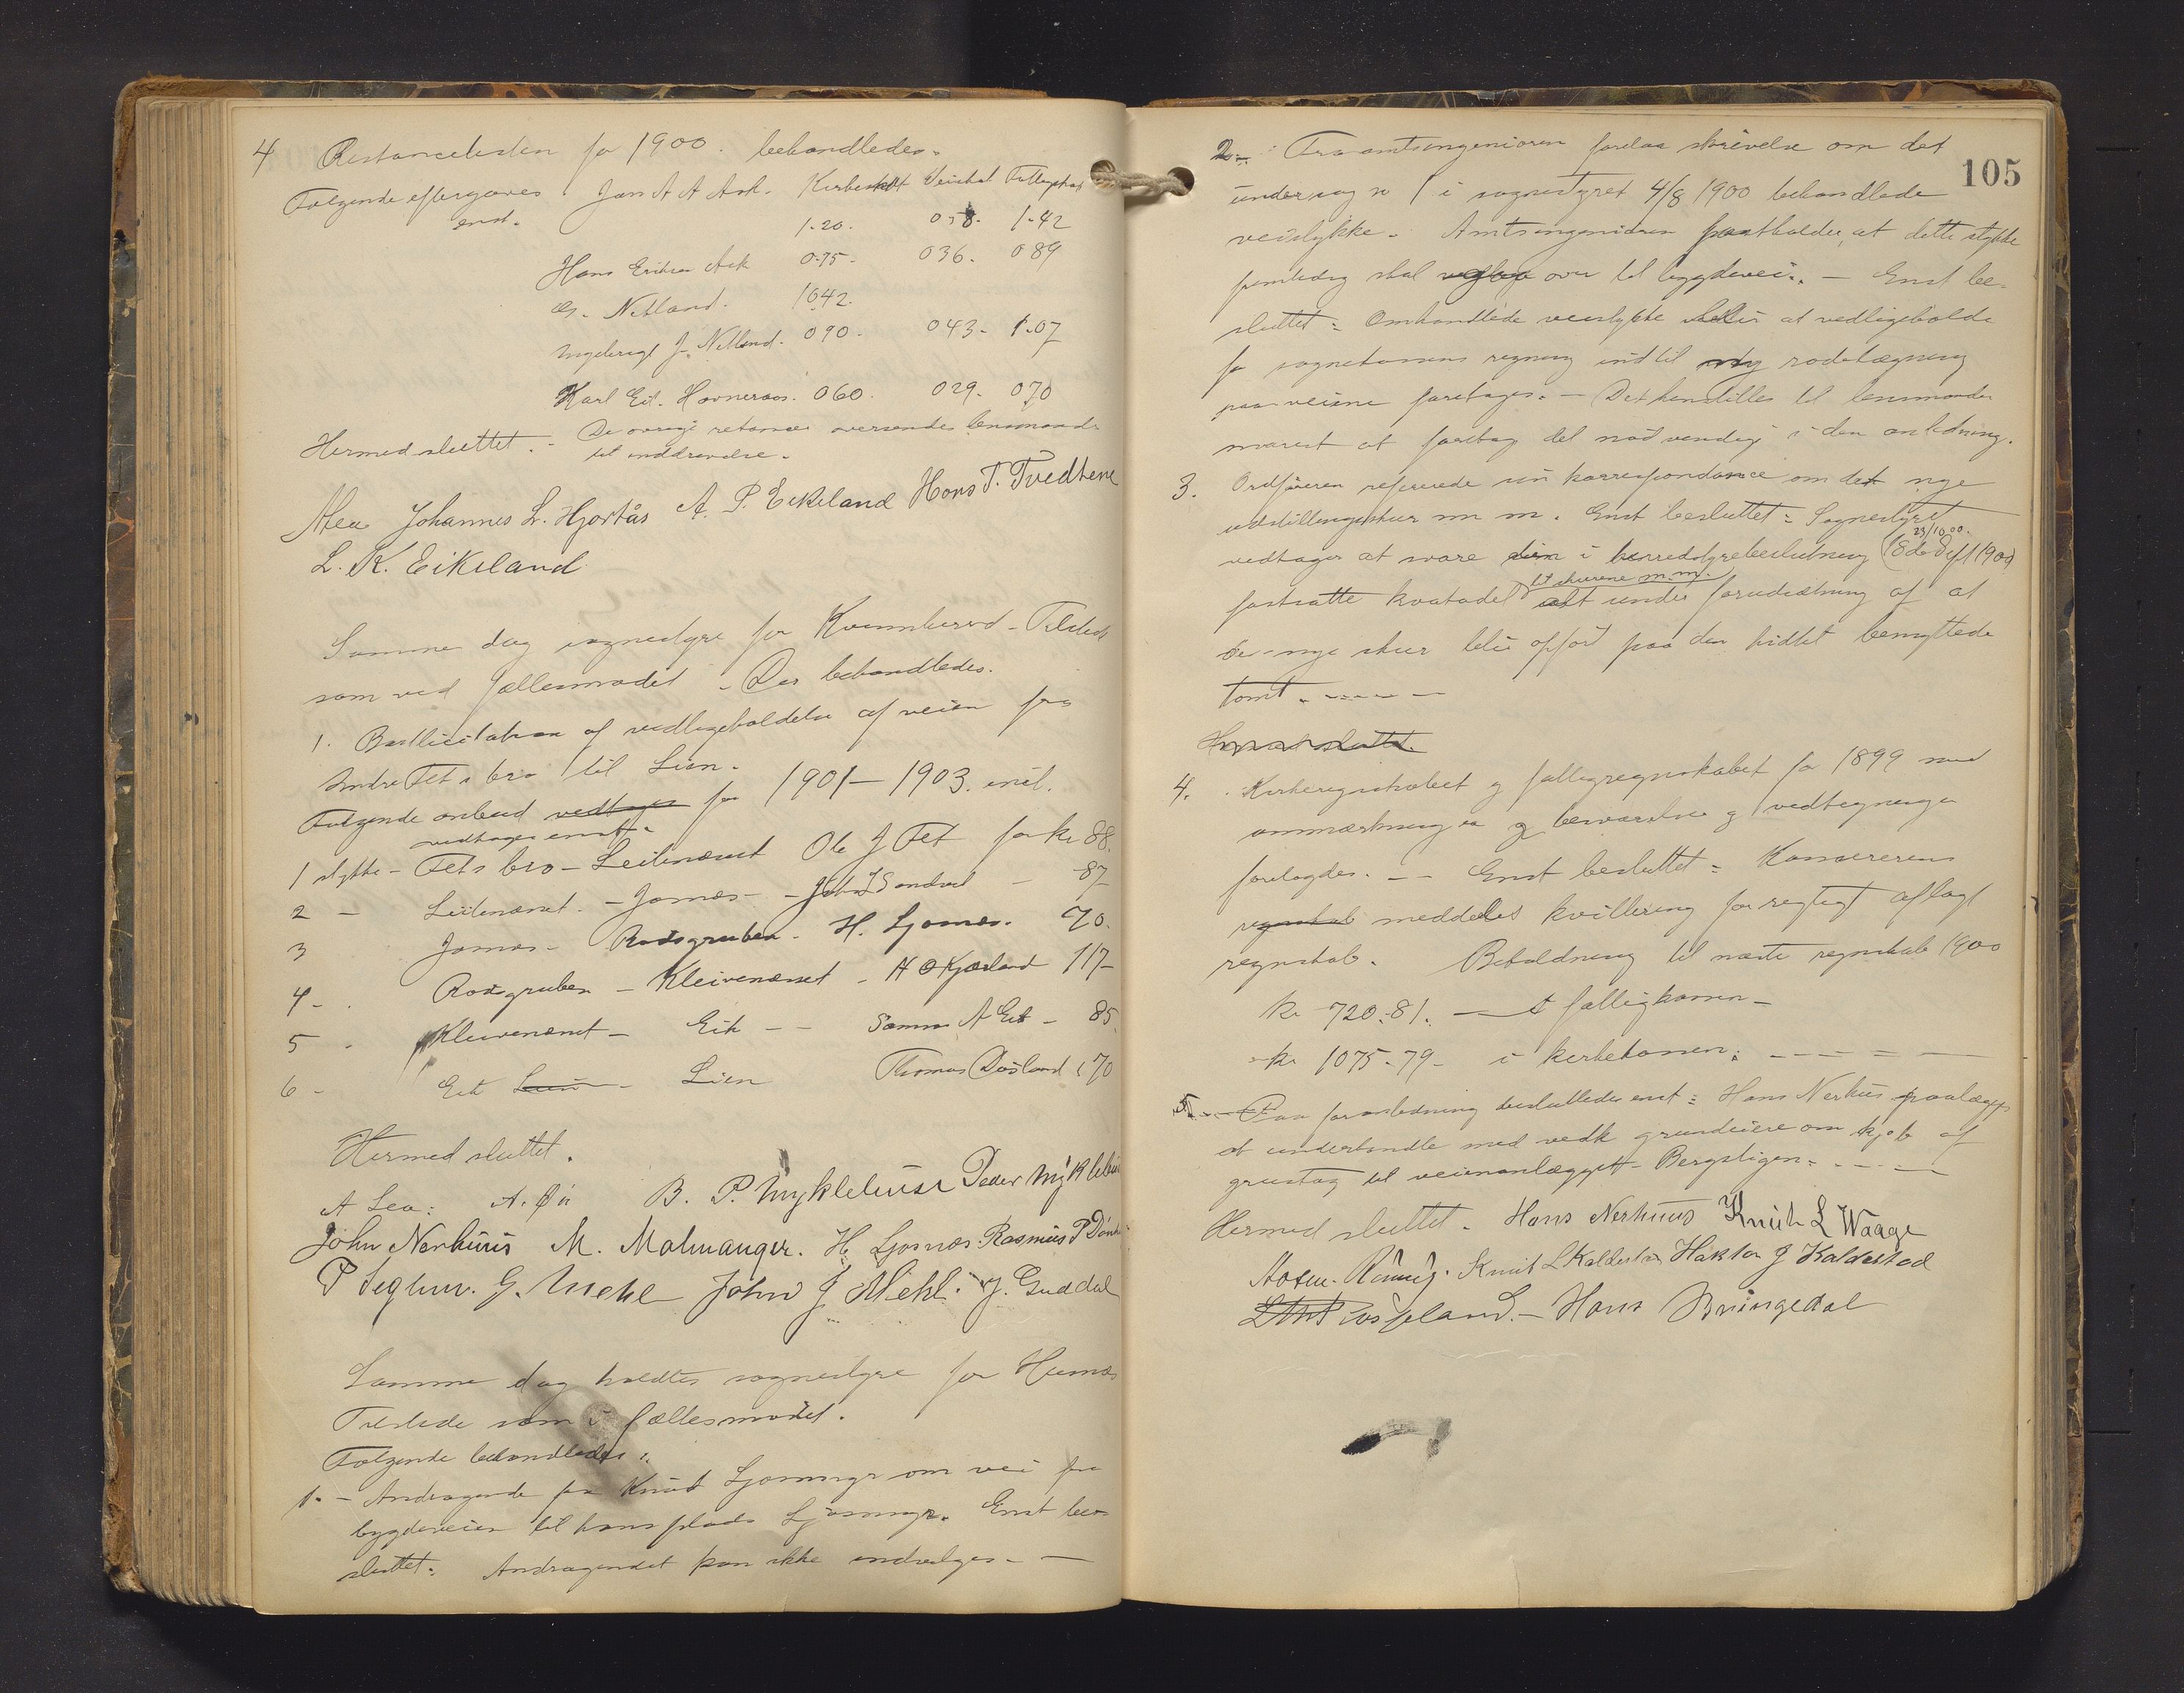 4 Restancelisten for 1900. behandledes.
Følgende eftergaves Jan A A Ask. Kirkeskat Veiskat Fattigskat
enst. 1.20. 058. 1.42
Hans Eriksen Ask 0.75. 036. 089
G. Netland. 1642.
Ingebrigt J. Netland. 090. 043. 1.07
Karl Eil. Havneraas. 060. 029. 070
Hermed sluttet. De øvrige restancer oversendes lensmanden
til inddrivelse.
ALea Johannes L. Hjortås A. P. Eikeland Hans T. Tvedtene
L. K. Eikeland
Samme dag sognestyre for Kvinnherred - Tilstede
som ved fællesmødet. Der behandledes.
1. Bortlicitation af vedligeholdelse af veien fra
indre Fets bro til Lien.
Følgende anbud vedtages for 1901 - 1903. incl.
vedtages enst.
1 stykke - Fets bro - Leitenæsset Ole J Fet for kr 88.
2 - Leitenæsset - Jomes - John L Sandvel - 87
3 Jomes - Rødsgruben - H. Ljones. 90.
4 - Rødsgruben - Kleivenæsset - H O Kjærland 117 -
5 - Kleivenæsset - Eik - - Samm A Eik - 85.
6 - Eik Lien - Lien Thomas Døsland 170
Hermed sluttet.
A Lea: A. Øi B. P. Myklebust Peder Myklebust
John Nerhuus M. Malmanger. H. Ljosnæs. Rasmus P
P Seglem. G. Mehl John J Mehl. J. Guddal
Samme dag holdtes sognestyre for
Tilstede som i fællesmødet.
Følgende behandledes:
1. - Andragende fra Knut Ljosmyr om vei fra
bygdeveien til hans plads Ljosmyr. Enst be-
sluttet: Andragendet kan ikke indvilges. -
105
2. Fra amtsingeniøren forelaa skrivelse om det
under sag no 1 i sognestyret 4/8 1900 behandlede
veistykke. Amtsingeniøren fastholder, at dette stykke
fremtidig skal over til bygdevei. - Enst be-
sluttet: Omhandlede veistykke blir at vedligeholde
for sognekassens regning indtil ny rodelægning
paa veiene foretages. - Det henstilles til lensmanden
snarest at foretage det nødvendige i den anledning.
3. Ordføreren refererede sin korrespondance om det nye
udstillingsskur m m. Enst besluttet: Sognestyret
vedtager at svare sin i herredstyrebeslutning (18de Sept 1900) 23/10 00.
fastsatte kvotadel til skurene m.m. alt under forudsætning af at
de nye skur blir opført paa den hidtil benyttede
tomt. - - - -
Hermed sluttet.
4. Kirkeregnskabet og fattigregnskabet for 1899 med
anmærkninger og besvarelse og vedtegninger
forelagdes. - - Enst besluttet: Kassererens
regnskab meddeles kvittering for rigtigt aflagt
regnskab. Beholdning til næste regnskab 1900
kr 720.81. - i fattigkassen -
kr 1075.79 - i kirkekassen: - - - -
5. - Paa foranledning besluttedes enst: Hans Nerhus paalægges
at underhandle med vedk grundeiere om kjøb af
grustag til veianlægget - Bergstigen. - - -
Hermed sluttet. Hans Nerhuus Knut L Waage
Knut L Kaldestad Håkton J Kaldestad
Hans Bringedal